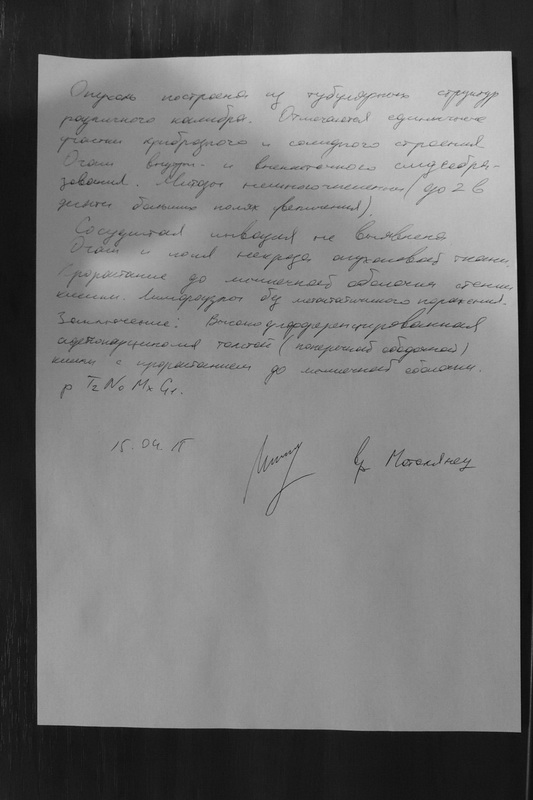 Опухоль построена из тубулярных структур
различного калибра. Отмечаются единичные
участки криброзного и солидного строения
Очаги внутри- и внеклеточного слизеобра-
зования. Митозы немногочисленны (до 2 в
десяти больших полях увеличения).
Сосудистая инвазия не выявлена
Очаги и поля некроза опухолевой ткани.
Прорастание до мышечной оболочки стенки
кишки. Лимфоузлы без метастатичного поражения.
Заключение: Высокодифференцированная
аденокарцинома толстой (поперечной ободочной)
кишки с прорастанием до мышечной оболочки.
p T2 N0 Mx G1.
15.04.15
Мотолянец